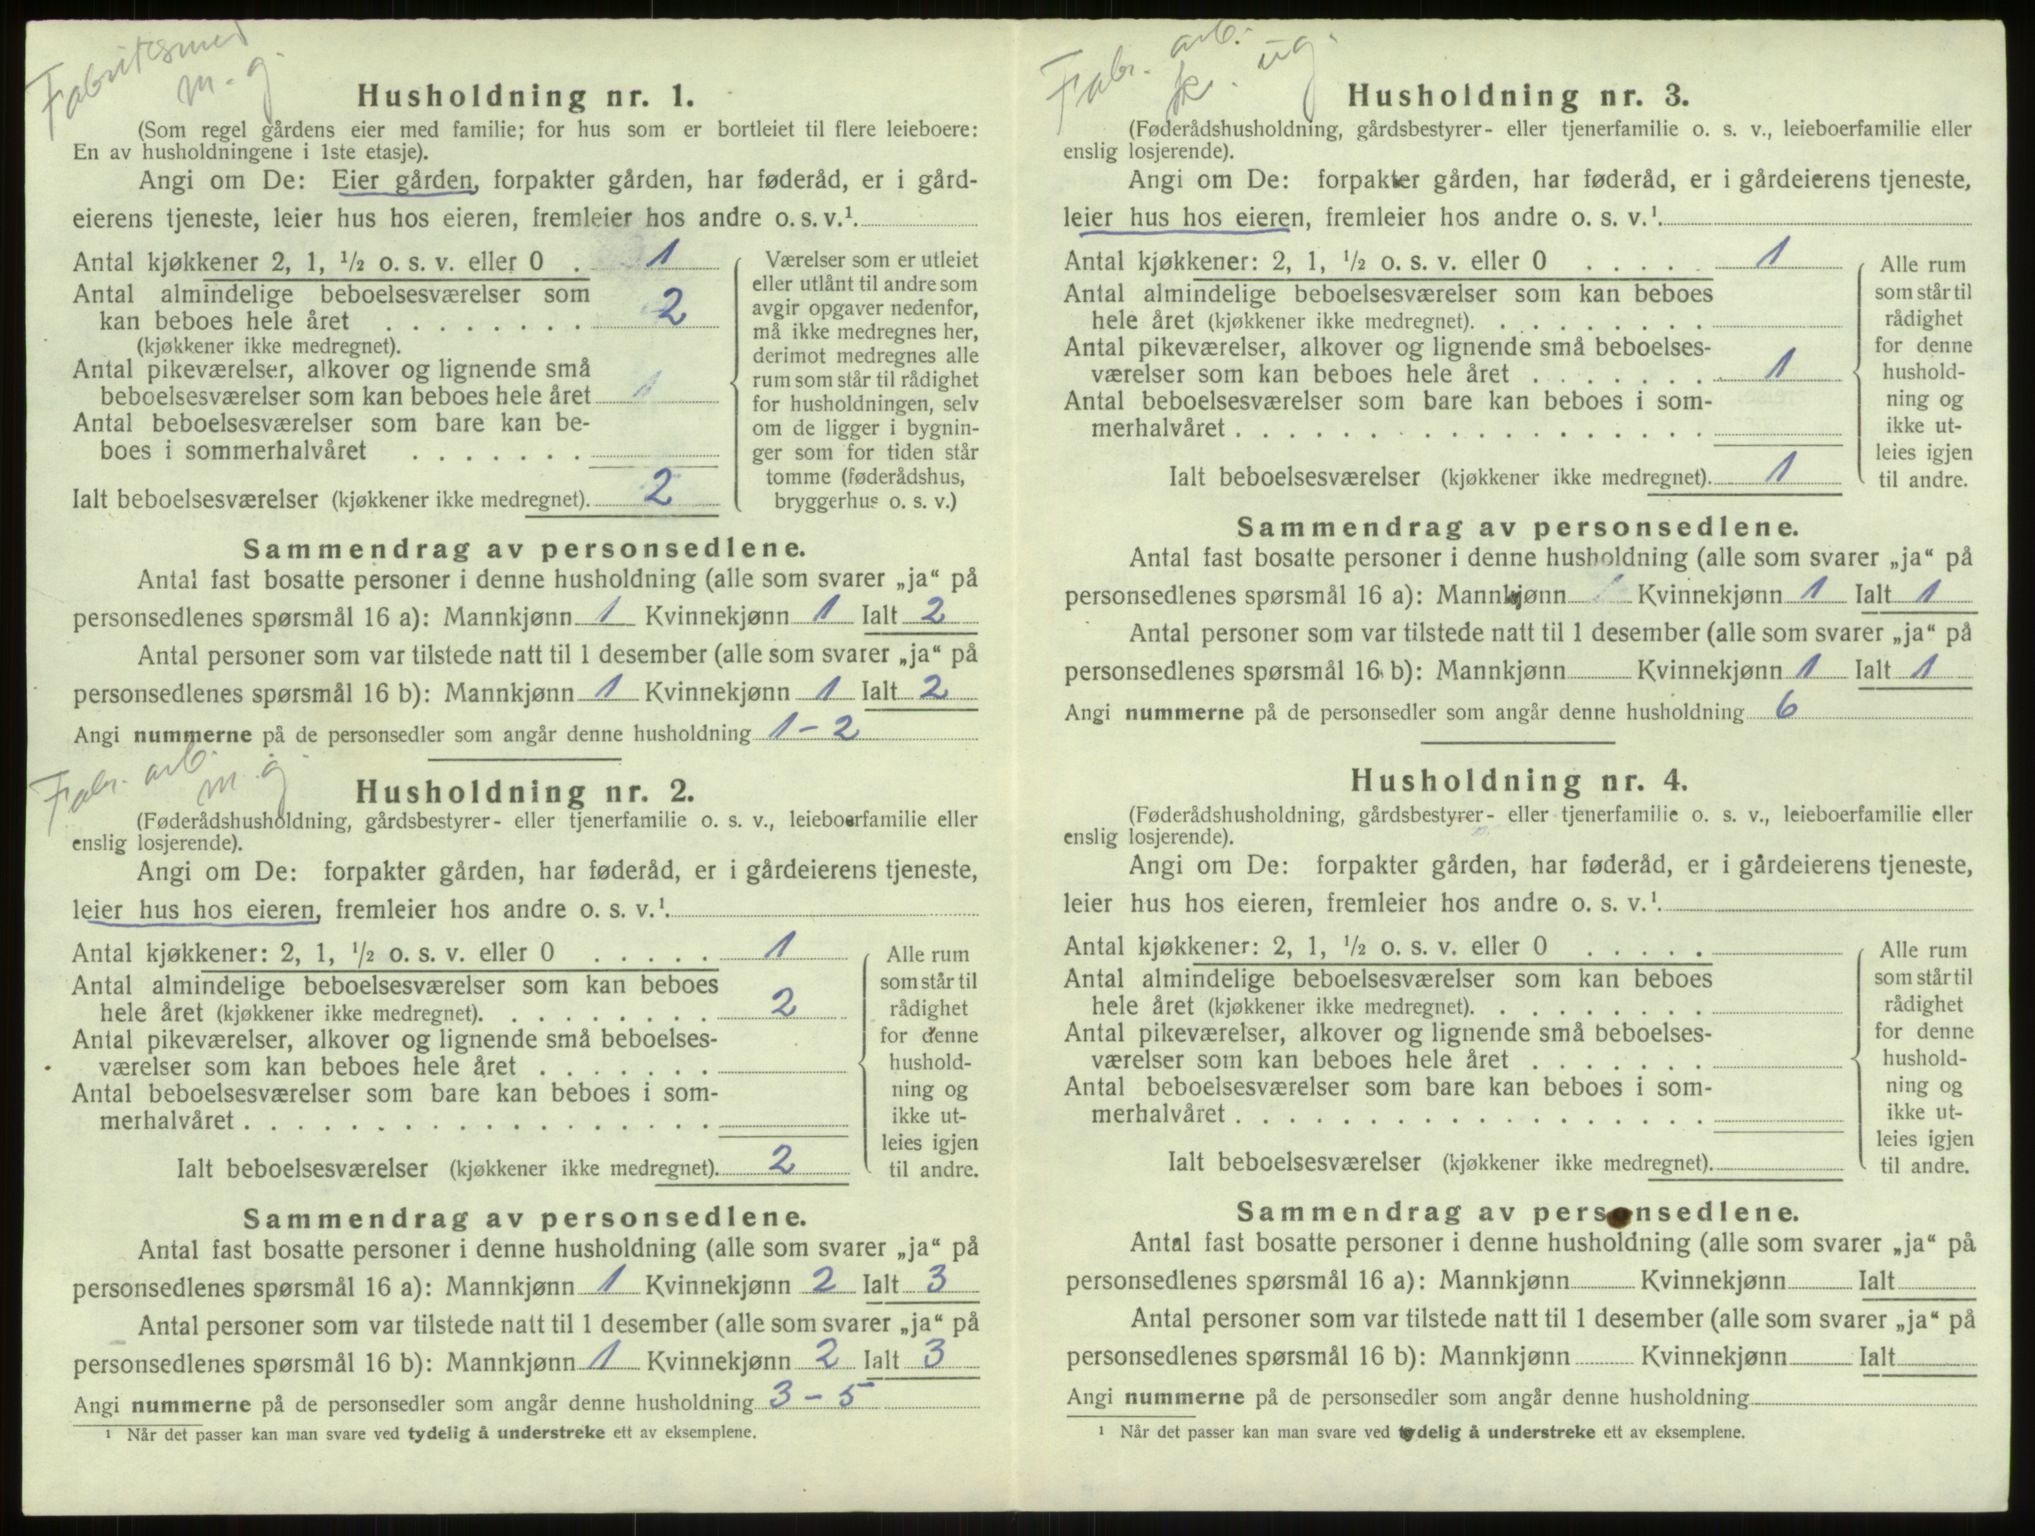 Fabriksmed
m. g.
Husholdning nr. 1.
(Som regel gårdens eier med familie; for hus som er bortleiet til flere leieboere:
En av husholdningene i 1ste etasje).
Angi om De: Eier gården, forpakter gården, har føderåd, er i gård-
eierens tjeneste, leier hus hos eieren, fremleier hos andre o. s. v.¹
Antal kjøkkener 2, 1, ½ o. s. v. eller 0 . 1
Antal almindelige beboelsesværelser som
kan beboes hele året . . . . . . . . 2
(kjøkkener ikke medregnet).
Antal pikeværelser, alkover og lignende små
beboelsesværelser som kan beboes hele året 1
Antal beboelsesværelser som bare kan be-
boes i sommerhalvåret . . . . . . .
Ialt beboelsesværelser (kjøkkener ikke medregnet). 2
Værelser som er utleiet
eller utlånt til andre som
avgir opgaver nedenfor,
må ikke medregnes her,
derimot medregnes alle
rum som står til rådighet
for husholdningen, selv
om de ligger i bygnin-
ger som for tiden står
tomme (føderådshus,
bryggerhus o. s. v.)
Sammendrag av personsedlene.
Antal fast bosatte personer i denne husholdning (alle som svarer „ja“ på
personsedlenes spørsmål 16 a): Mannkjønn 1 Kvinnekjønn 1 Ialt 2
Antal personer som var tilstede natt til 1 desember (alle som svarer „ja“ på
personsedlenes spørsmål 16 b): Mannkjønn 1 Kvinnekjønn 1 Ialt 2
Angi nummerne på de personsedler som angår denne husholdning 1 - 2
Fabr. arb.
m. g.
Husholdning nr. 2.
(Føderådshusholdning, gårdsbestyrer- eller tjenerfamilie o. s. v., leieboerfamilie eller
enslig losjerende).
Angi om De: forpakter gården, har føderåd, er i gårdeierens tjeneste,
leier hus hos eieren, fremleier hos andre o. s. v.¹
Antal kjøkkener: 2, 1, ½ o. s. v. eller 0 . . . . . 1
Antal almindelige beboelsesværelser som kan beboes
hele året (kjøkkener ikke medregnet). . . . . . . . . 2
Antal pikeværelser, alkover og lignende små beboelses-
værelser som kan beboes hele året . . . . . . .
Antal beboelsesværelser som bare kan beboes i som-
merhalvåret . . . . . . . . . . . . . . . . . .
Ialt beboelsesværelser (kjøkkener ikke medregnet). 2
Alle rum
som står til
rådighet
for denne
hushold-
ning og
ikke ut-
leies igjen
til andre.
Sammendrag av personsedlene.
Antal fast bosatte personer i denne husholdning (alle som svarer „ja“ på
personsedlenes spørsmål 16 a): Mannkjønn 1 Kvinnekjønn 2 Ialt 3
Antal personer som var tilstede natt til 1 desember (alle som svarer „ja“ på
personsedlenes spørsmål 16 b): Mannkjønn 1 Kvinnekjønn 2 Ialt 3
Angi nummerne på de personsedler som angår denne husholdning 3 - 5
¹ Når det passer kan man svare ved tydelig å understreke ett av eksemplene.
Fabr. arb.
k. ug.
Husholdning nr. 3.
(Føderådshusholdning, gårdsbestyrer- eller tjenerfamilie o. s. v., leieboerfamilie eller
enslig losjerende).
Angi om De: forpakter gården, har føderåd, er i gårdeierens tjeneste,
leier hus hos eieren, fremleier hos andre o. s. v.¹
Antal kjøkkener: 2, 1, ½ o. s. v. eller 0 . . . . . 1
Antal almindelige beboelsesværelser som kan beboes
hele året (kjøkkener ikke medregnet). . . . . . . . .
Antal pikeværelser, alkover og lignende små beboelses-
værelser som kan beboes hele året . . . . . . . 1
Antal beboelsesværelser som bare kan beboes i som-
merhalvåret . . . . . . . . . . . . . . . . . .
Ialt beboelsesværelser (kjøkkener ikke medregnet). 1
Alle rum
som står til
rådighet
for denne
hushold-
ning og
ikke ut-
leies igjen
til andre.
Sammendrag av personsedlene.
Antal fast bosatte personer i denne husholdning (alle som svarer „ja“ på
personsedlenes spørsmål 16 a): Mannkjønn Kvinnekjønn 1 Ialt 1
Antal personer som var tilstede natt til 1 desember (alle som svarer „ja“ på
personsedlenes spørsmål 16 b): Mannkjønn Kvinnekjønn 1 Ialt 1
Angi nummerne på de personsedler som angår denne husholdning 6
Husholdning nr. 4.
(Føderådshusholdning, gårdsbestyrer- eller tjenerfamilie o. s. v., leieboerfamilie eller
enslig losjerende).
Angi om De: forpakter gården, har føderåd, er i gårdeierens tjeneste,
leier hus hos eieren, fremleier hos andre o. s. v.¹
Antal kjøkkener: 2, 1, ½ o. s. v. eller 0 . . . . .
Antal almindelige beboelsesværelser som kan beboes
hele året (kjøkkener ikke medregnet). . . . . . . . .
Antal pikeværelser, alkover og lignende små beboelses-
værelser som kan beboes hele året . . . . . . .
Antal beboelsesværelser som bare kan beboes i som-
merhalvåret . . . . . . . . . . . . . . . . . .
Ialt beboelsesværelser (kjøkkener ikke medregnet).
Alle rum
som står til
rådighet
for denne
hushold-
ning og
ikke ut-
leies igjen
til andre.
Sammendrag av personsedlene.
Antal fast bosatte personer i denne husholdning (alle som svarer „ja“ på
personsedlenes spørsmål 16 a): Mannkjønn Kvinnekjønn Ialt
Antal personer som var tilstede natt til 1 desember (alle som svarer „ja“ på
personsedlenes spørsmål 16 b): Mannkjønn Kvinnekjønn Ialt
Angi nummerne på de personsedler som angår denne husholdning
¹ Når det passer kan man svare ved tydelig å understreke ett av eksemplene.